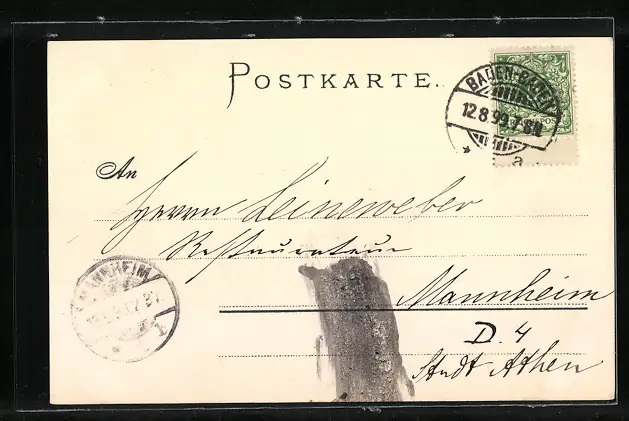 POSTKARTE.
BADEN-BADEN
12.8.99.7-8N
a
An
Herrn Leineweber
Restaurateur
MANNHEIM
1
Mannheim
D. 4
Stadt Athen